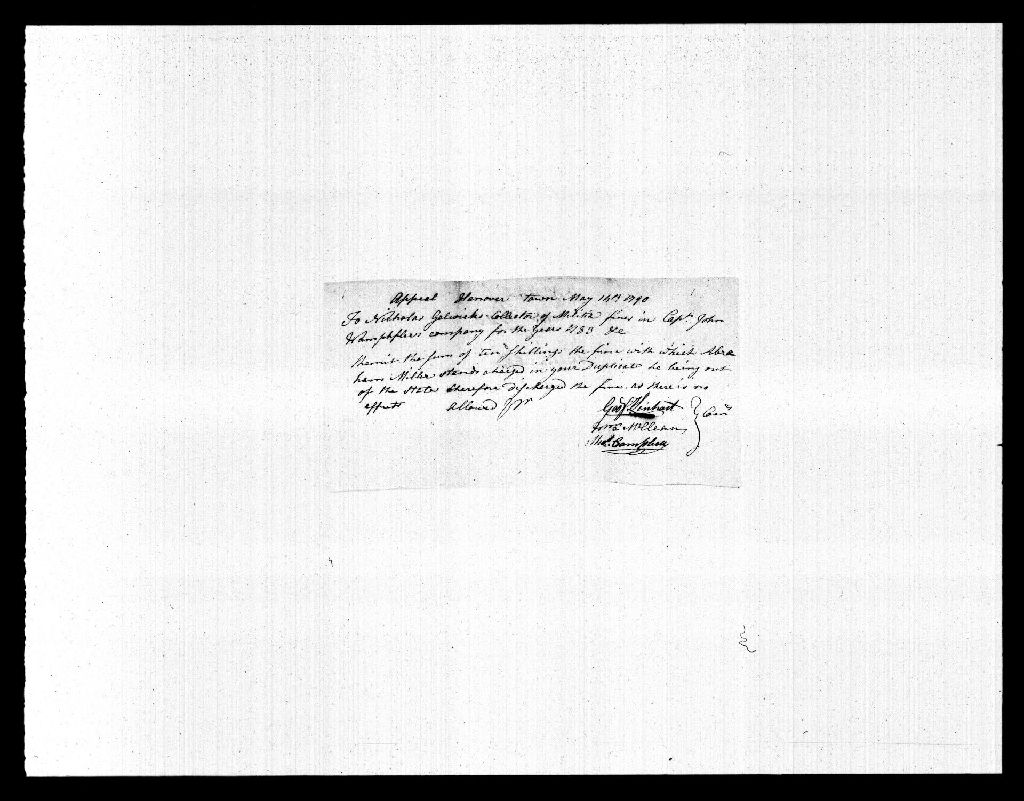 Appeal Hanover town May 14th 1790
To Nicholas Gelwicks Collector of Militia fines in Capt. John
Wampfhlers company for the Years 1783 &c
Remit the sum of ten Shillings the fine with which Abra
ham Miller stands charged in your Duplicate he being out
of the State therefore discharged the fine as there is no
effects allowed
Linhart
McClean
Thos. Campbell